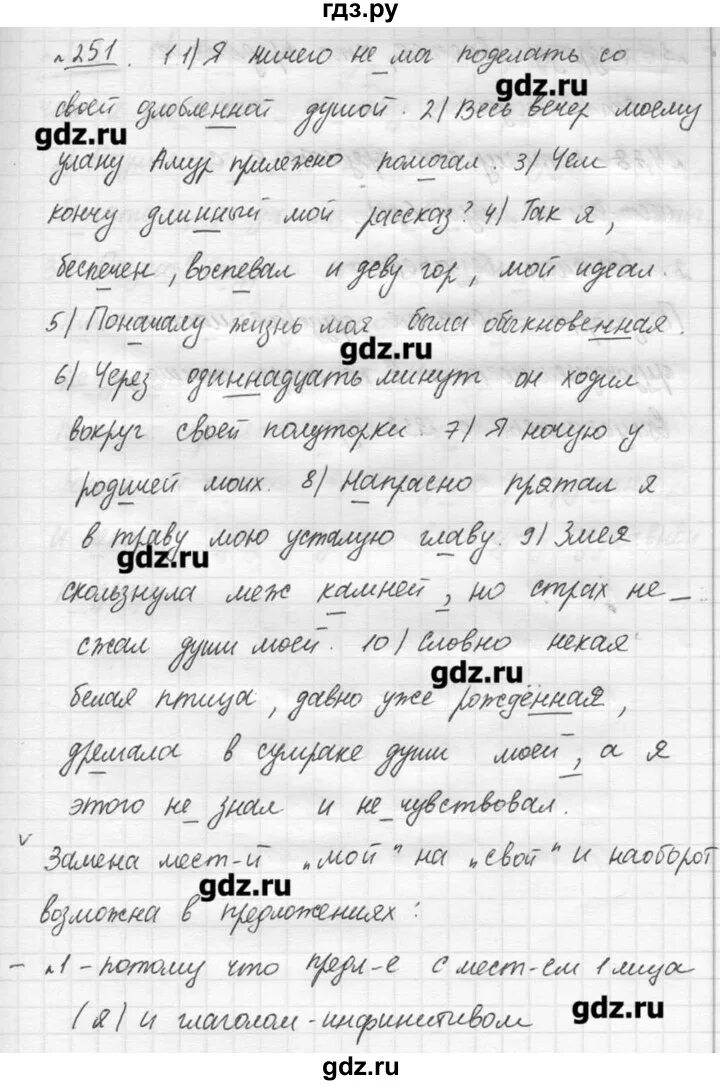 гдз.ру
№251. 1 1) Я ничего не мог поделать со
gdz.ru
своей озлобленной душой. 2) Весь вечер моему
gdz.ru
улану Амур прилежно помогал. 3) Чем
кончу длинный мой рассказ? 4) Так я,
беспечен, воспевал и деву гор, мой идеал.
5) Поначалу жизнь моя была обыкновенная.
gdz.ru
6) Через одиннадцать минут он ходил
вокруг своей полуторки 7) Я ночую у
родичей моих. 8) Напрасно прятал я
в траву мою усталую главу. 9) Змея
gdz.ru
скользнула меж камней, но страх не
сжал души моей. 10) Словно некая
gdz.ru
белая птица, давно уже рождённая,
дремала в сумраке души моей, а я
этого не знал и не чувствовал.
v
Замена мест-й „мой" на „свой" и наоборот
gdz.ru
возможна в предложениях:
– №1 - потому что предл-е с мест-ем 1 лица
(я) и глаголом-инфинитивом
gdz.ru
gdz.ru